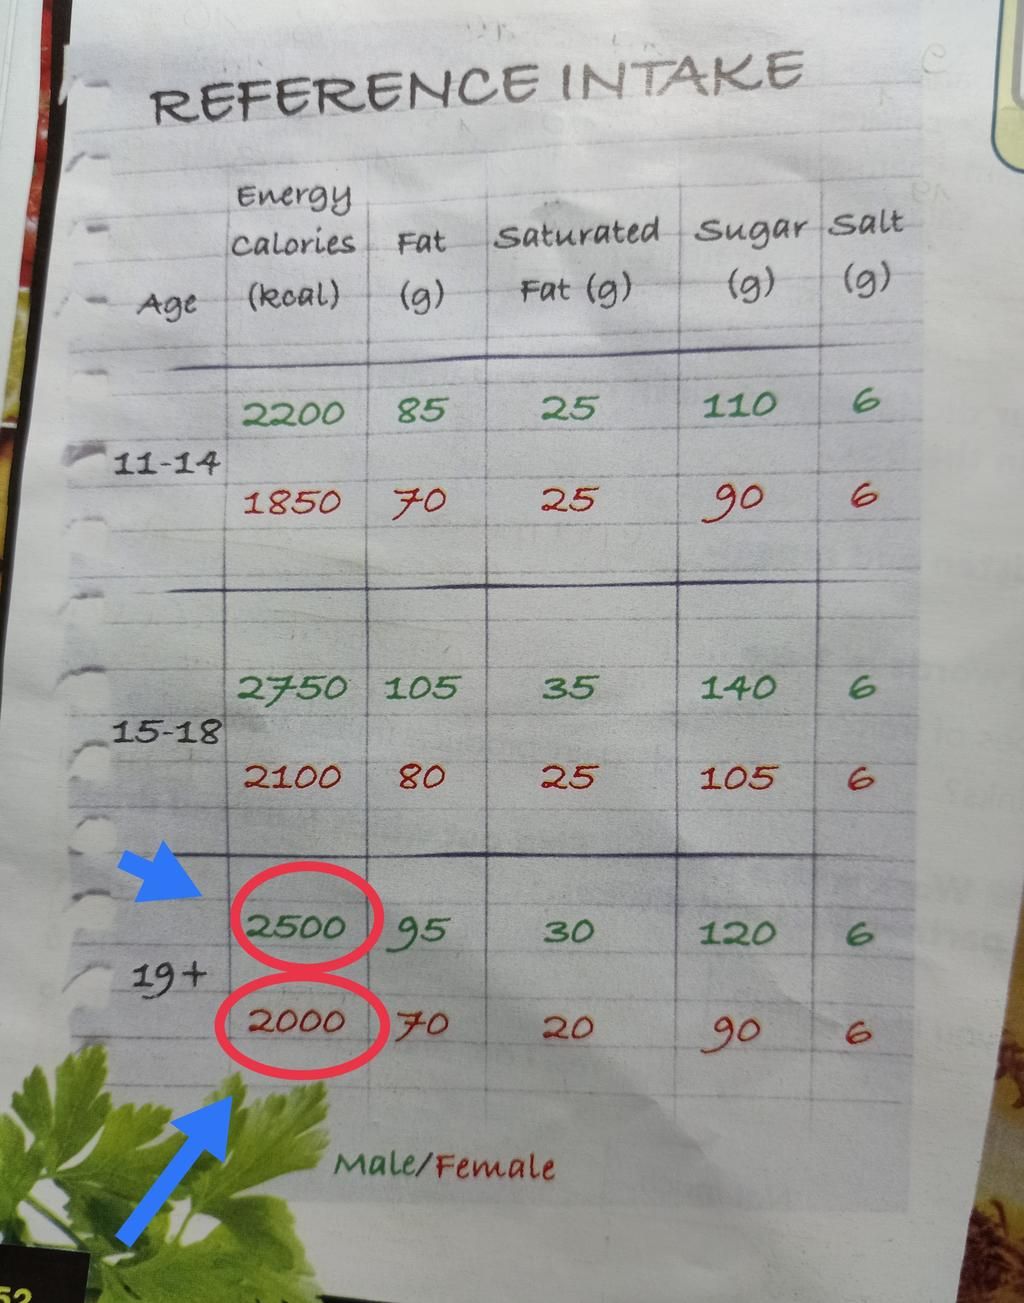 REFERENCE INTAKE
Age Energy Calories (kcal) Fat (g) Saturated Fat (g) Sugar (g) Salt (g)
11-14
2200 85 25 110 6
1850 70 25 90 6
15-18
2750 105 35 140 6
2100 80 25 105 6
19+
2500 95 30 120 6
2000 70 20 90 6
Male/Female
52